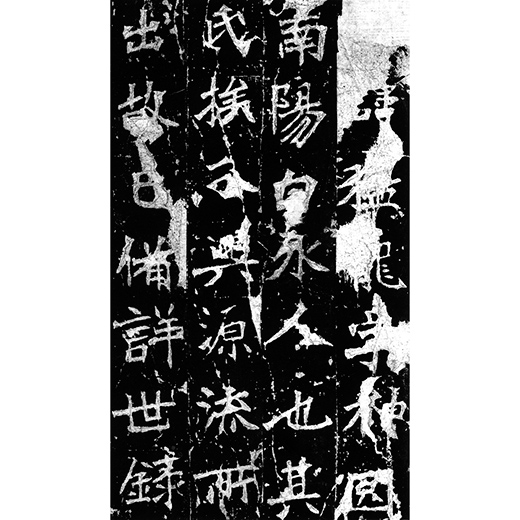 猛龍字神囧
南陽白水人也其
氏族分興源流所
出故已備詳世録